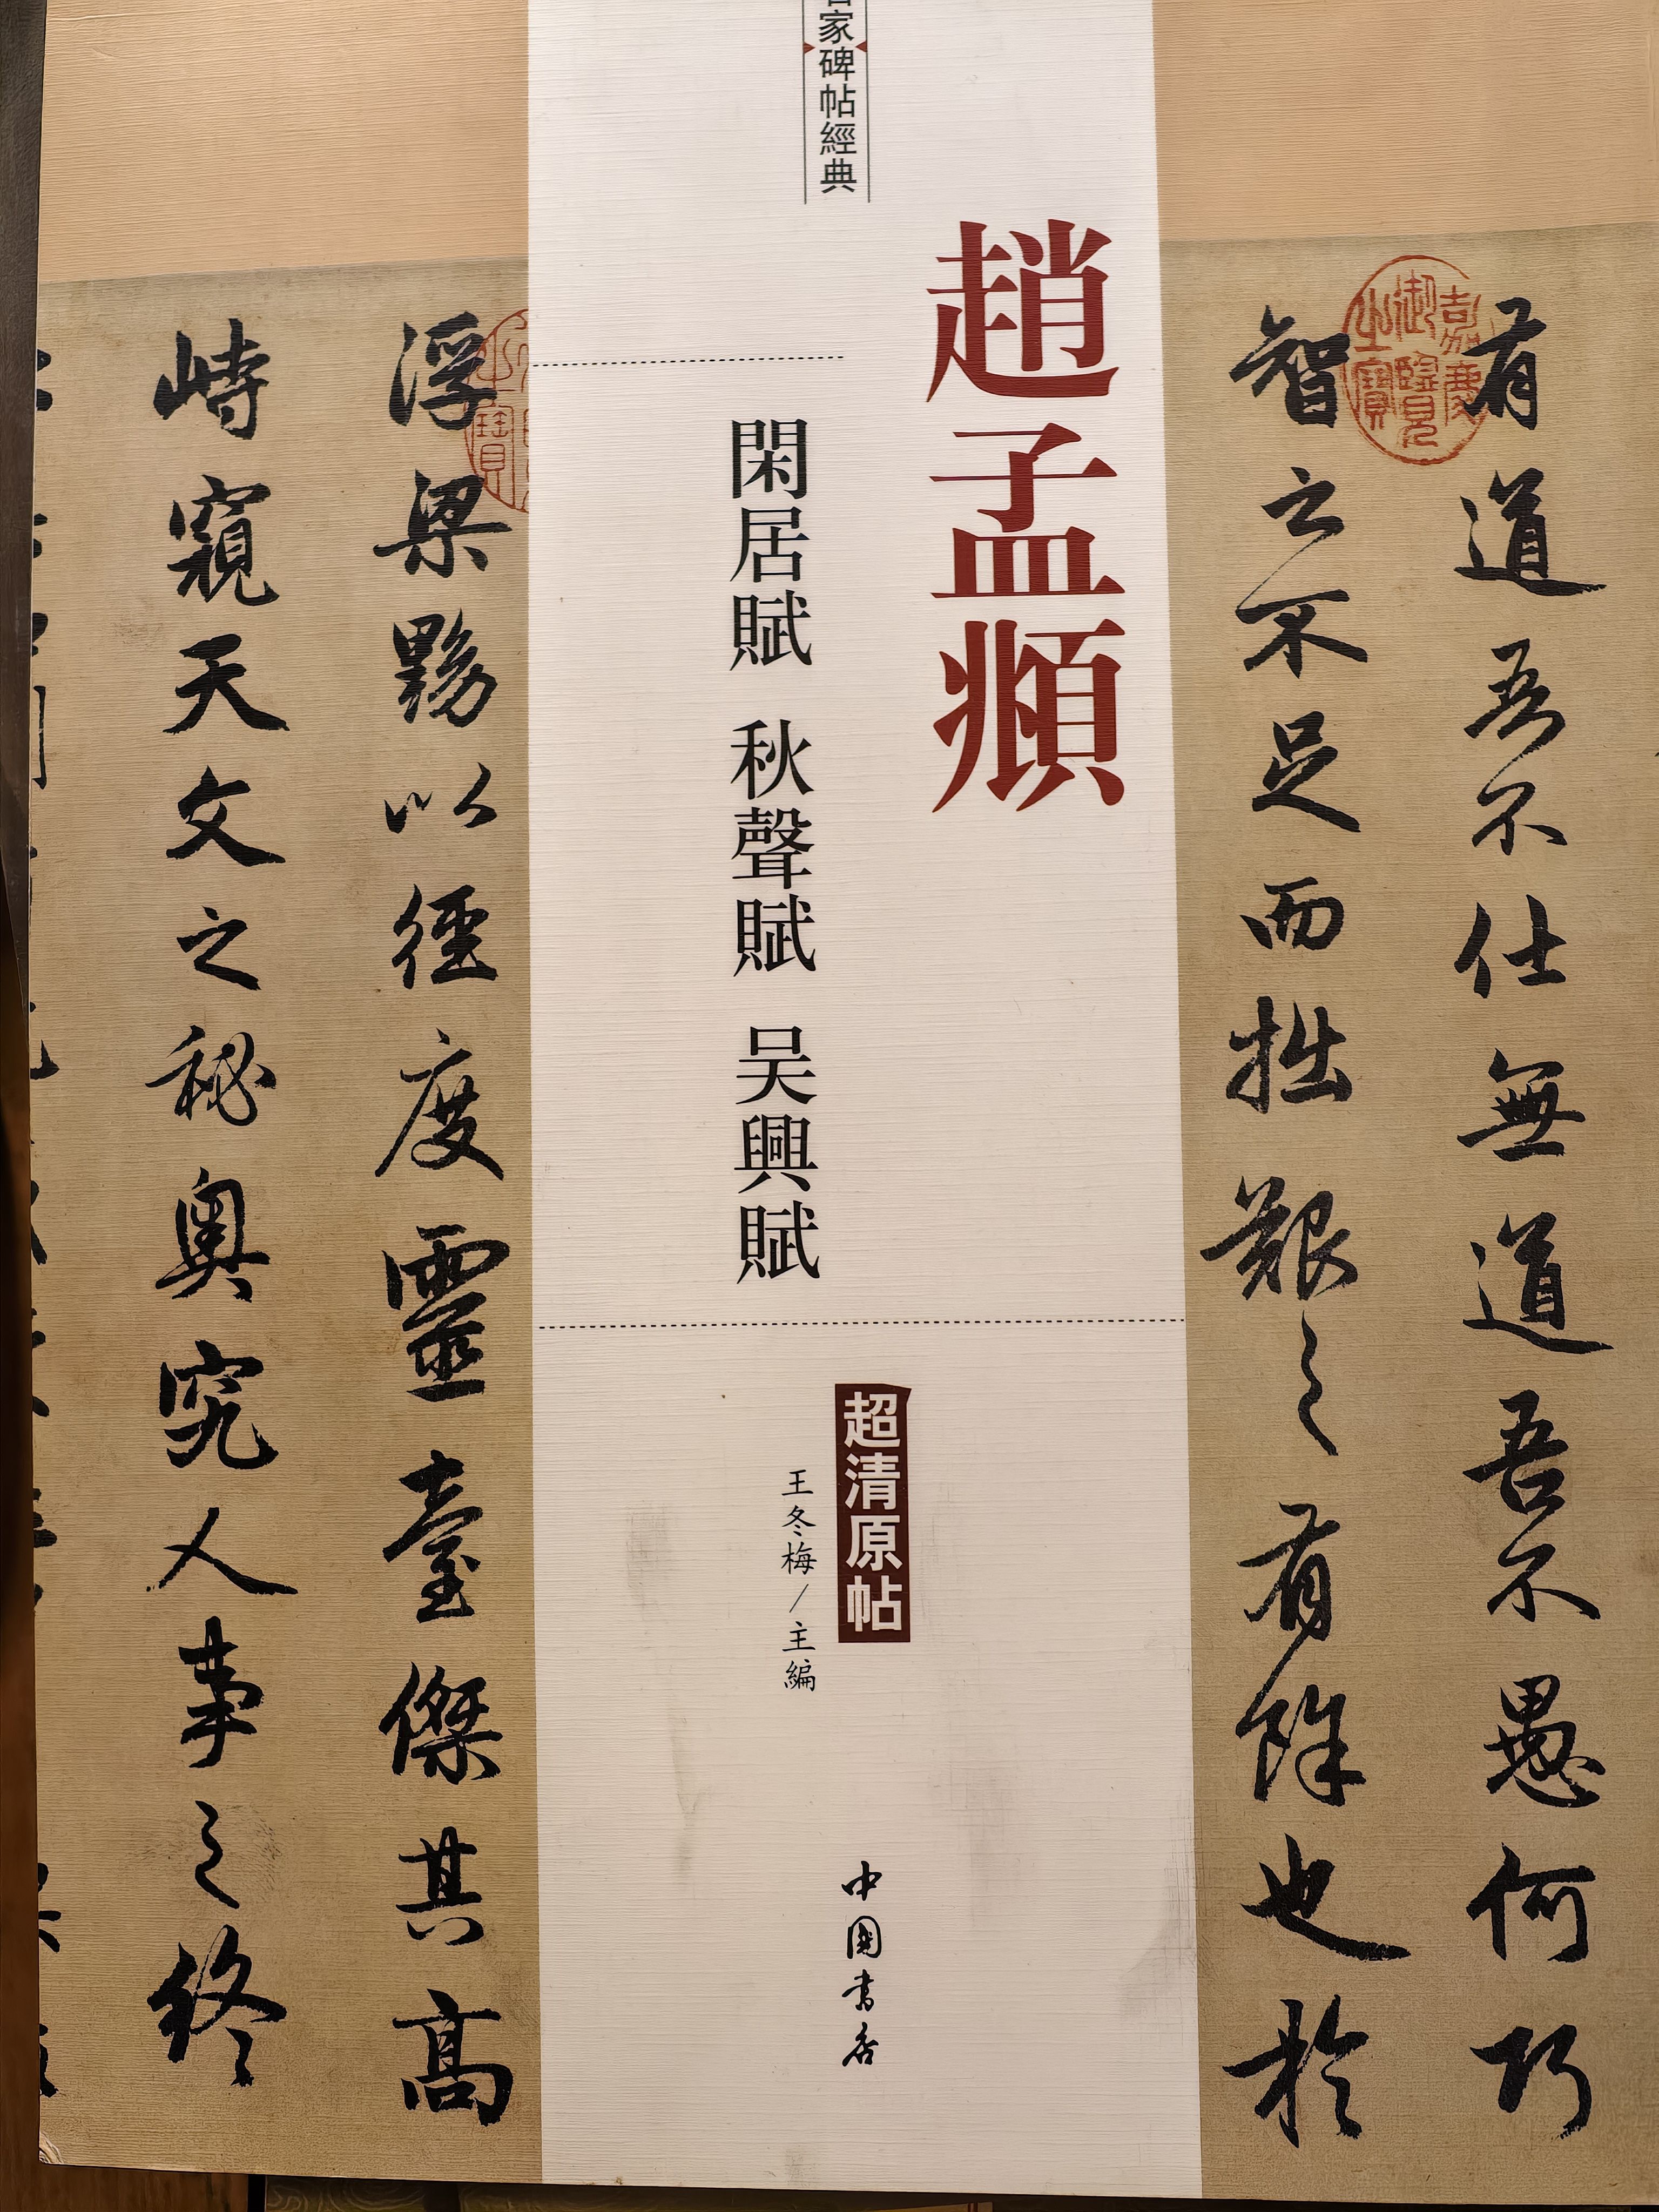 有道吾不仕無道吾不愚何巧
智之不足而拙艱之有餘也於
嘉慶御覽之寶
家碑帖經典
趙孟頫
閑居賦 秋聲賦 吴興賦
超清原帖
王冬梅/主編
中國書店
浮梁黝以徑度靈臺傑其高
峙窺天文之秘奥究人事之終